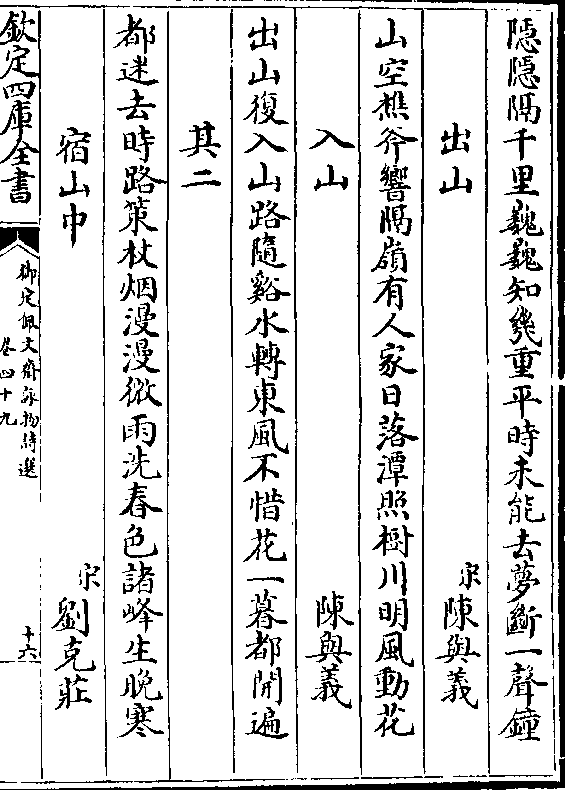 隠隠隔千里巍巍知幾重平時未能去夢斷一聲鐘
出山 宋陳與義
山空樵斧響隔嶺有人家日落潭照樹川明風動花
入山 陳與義
出山復入山路隨谿水轉東風不惜花一暮都開遍
其二
都迷去時路策杖烟漫漫微雨洗春色諸峰生晚寒
宿山中 宋劉克莊
欽定四庫全書
御定佩文齋詠物詩選
卷四十九
十六